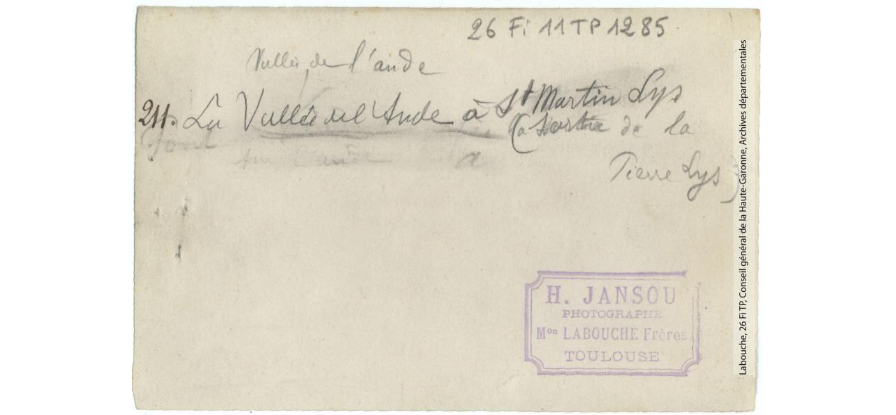 26 Fi 11 TP 1285
Vallée de l'aude
211. La Vallée de l'Aude à St Martin Lys
(à Sortie de la
Pierre Lys)
H. JANSOU
PHOTOGRAPHE
Mon LABOUCHE Frères
TOULOUSE
Labouche, 26 Fi TP, Conseil général de la Haute-Garonne, Archives départementales